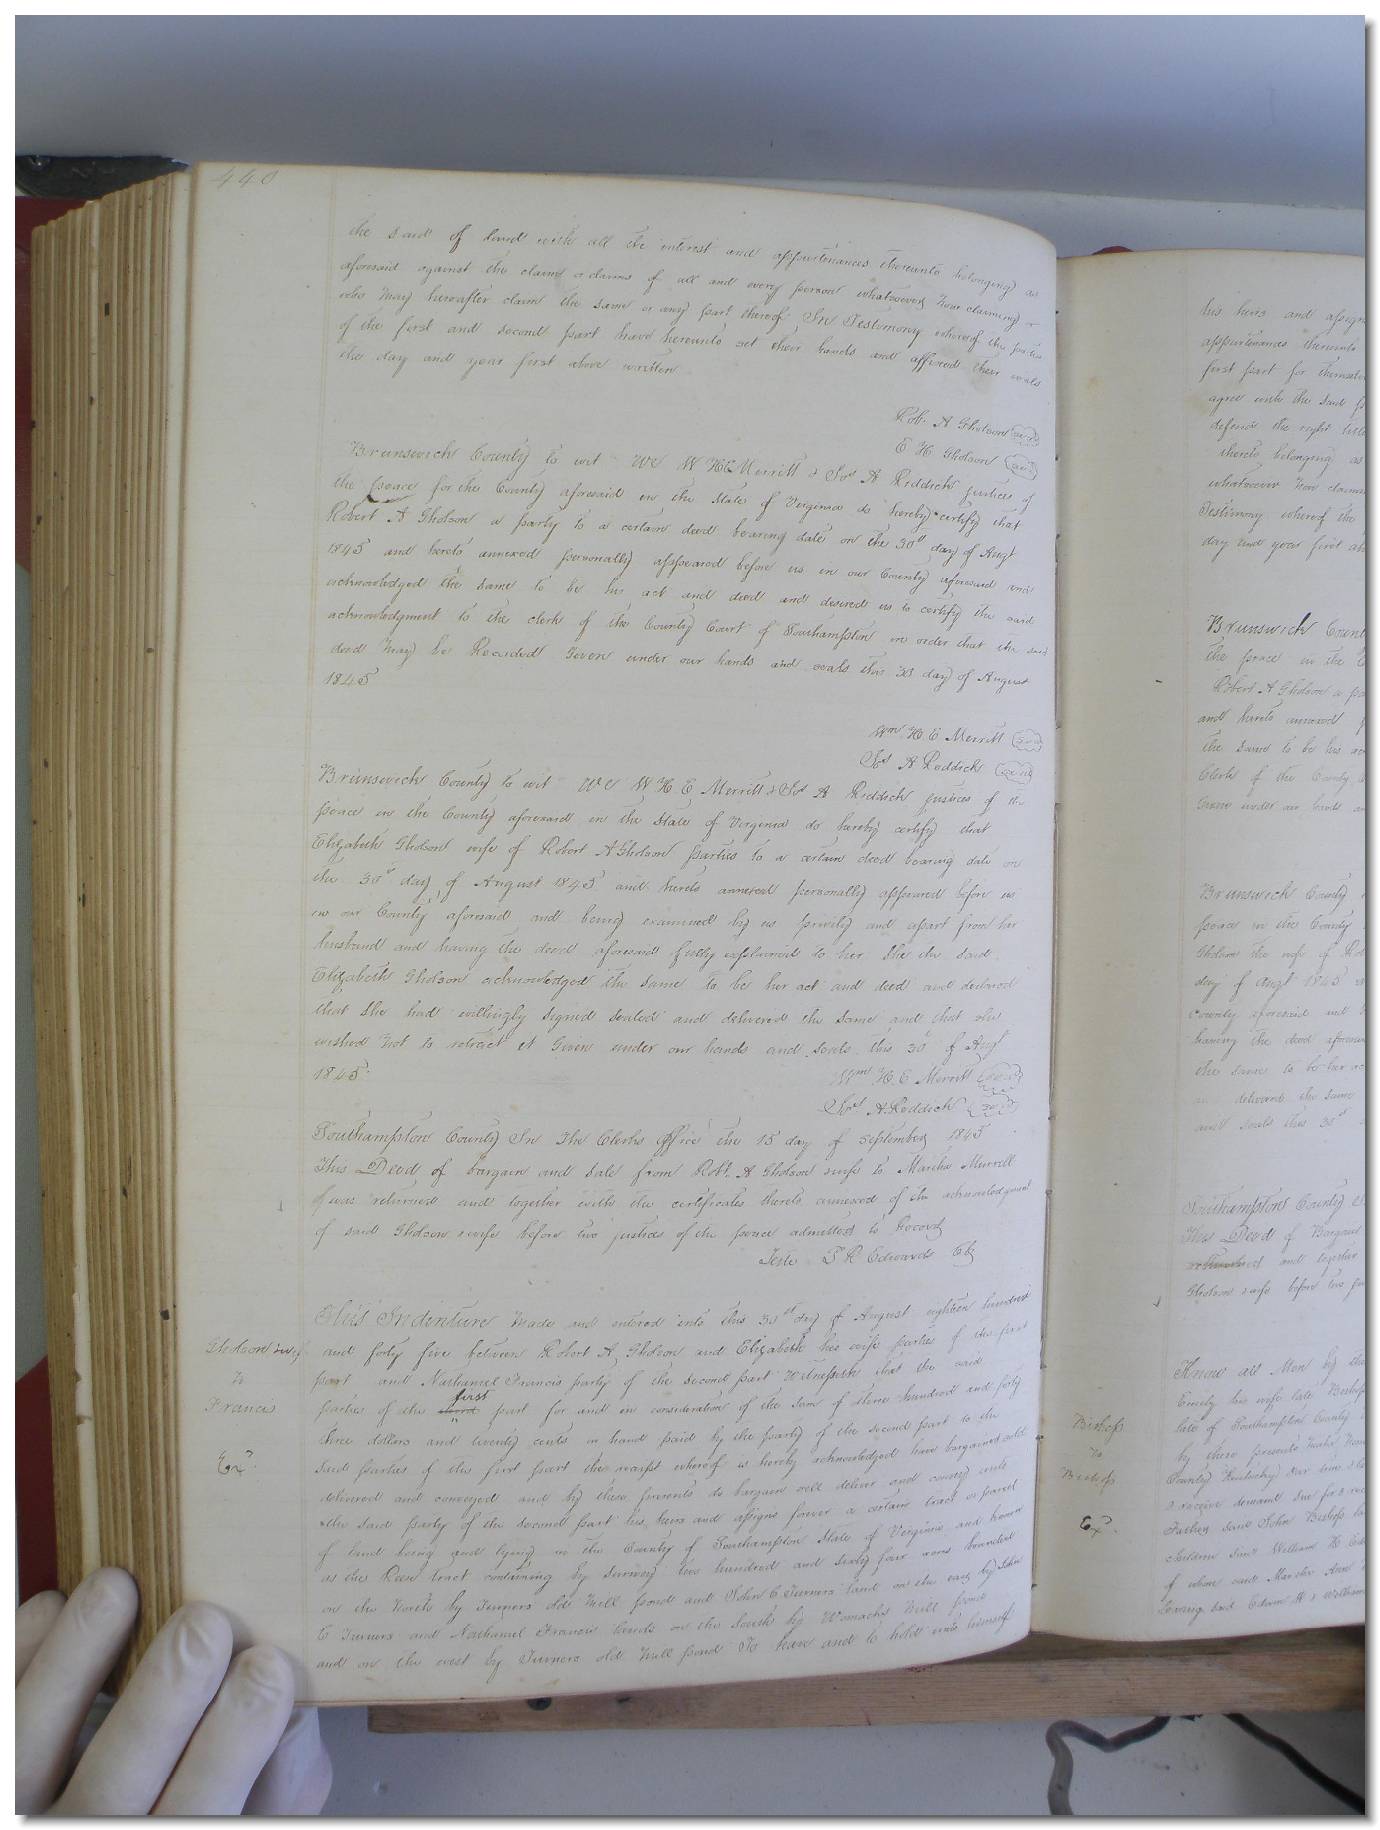 440
the said of land with all the interest and appurtenances thereunto belonging as
aforesaid against the claim or claims of all and every person whatsoever now claiming or
who may hereafter claim the same or any part thereof In Testimony whereof the parties
of the first and second part have hereunto set their hands and affixed their seals
the day and year first above written
Rob. A Gholson seal
E H Gholson seal
Brunswick County to wit We W H E Merritt & A Riddick justices of
the peace for the County aforesaid in the State of Virginia do hereby certify that
Robert A Gholson a party to a certain deed bearing date on the 30th day of Augt
1845 and hereto annexed personally appeared before us in our County aforesaid and
acknowledged the same to be his act and deed and desired us to certify the said
acknowledgment to the clerk of the County Court of Southampton in order that the said
deed may be Recorded Given under our hands and seals this 30 day of August
1845
Wm H E Merritt seal
A Riddick seal
Brunswick County to wit We W H E Merritt & A Riddick justices of the
peace in the County aforesaid in the State of Virginia do hereby certify that
Elizabeth Gholson wife of Robert A Gholson parties to a certain deed bearing date on
the 30th day of August 1845 and hereto annexed personally appeared before us
in our County aforesaid and being examined by us privily and apart from her
husband and having the deed aforesaid fully explained to her She the said
Elizabeth Gholson acknowledged the same to be her act and deed and declared
that she had willingly signed sealed and delivered the same and that she
wished not to retract it Given under our hands and seals this 30th of Augt
1845
Wm H. E Merritt seal
A. Riddick seal
Southampton County In The Clerks Office the 15 day of September 1845
This Deed of bargain and sale from Robt. A Gholson & wife to Martha Murrell
was returned and together with the certificates thereto annexed of the acknowledgment
of said Gholson & wife before two justices of the peace admitted to Record
Teste L R Edwards Clk
This Indenture Made and entered into this 30th day of August eighteen hundred
Gholson & wife and forty five between Robert A Gholson and Elizabeth his wife parties of the first
to part and Nathaniel Francis party of the second part Witnesseth that the said
Francis parties of the first part for and in consideration of the sum of three hundred and forty
three dollars and twenty cents in hand paid by the party of the second part to the
Exd. said parties of the first part the receipt whereof is hereby acknowledged have bargained sold
delivered and conveyed and by these presents do bargain sell deliver and convey unto
the said party of the second part his heirs and assigns forever a certain tract or parcel
of land being and lying in the County of Southampton State of Virginia and known
as the Rose tract containing by survey two hundred and sixty four acres bounded
on the North by Turners old Mill pond and John C Turners land on the east by John
C Turners and Nathaniel Francis lands on the South by Womacks Mill pond
and on the west by Turners old Mill pond To have and to hold unto himself
his heirs and assign
appurtenances thereunto
first part for themselves
agree with the said
defend the right title
thereto belonging as
whatsoever now claim
Testimony whereof the
day and year first ab
Brunswick Count
the peace in the
Robert A Gholson a pa
and hereto annexed
the same to be his ac
Clerk of the County
Given under our hands an
Brunswick County
peace in the County
Gholson the wife of Ro
day of Augt 1845
County aforesaid and
having the deed aforesaid
the same to be her ac
delivered the same
and seals this 30th
Southampton County
This Deed of Bargain
returned and together
Gholson & wife before two
Know all Men by the
Bishop
late of Southampton County
to by these presents
Bishop County Kentucky
receive demand sue for & rec
Exd. Father said John Bishop
children William H
of whom said Martha Ann